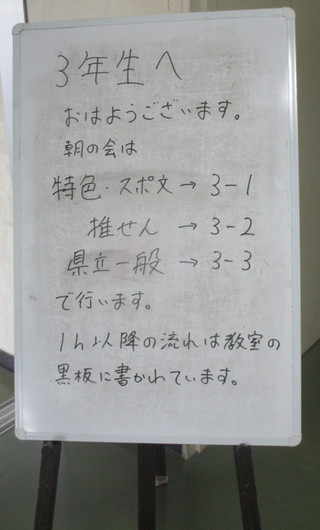 3年生へ
おはようございます。
朝の会は
特色・スポ文→3-1
推せん→3-2
県立一般→3-3
で行います。
1h以降の流れは教室の
黒板に書かれています。